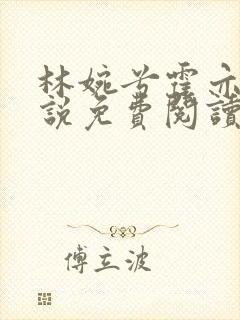 林婉兮霍亦
說免費閱讀
傅立波